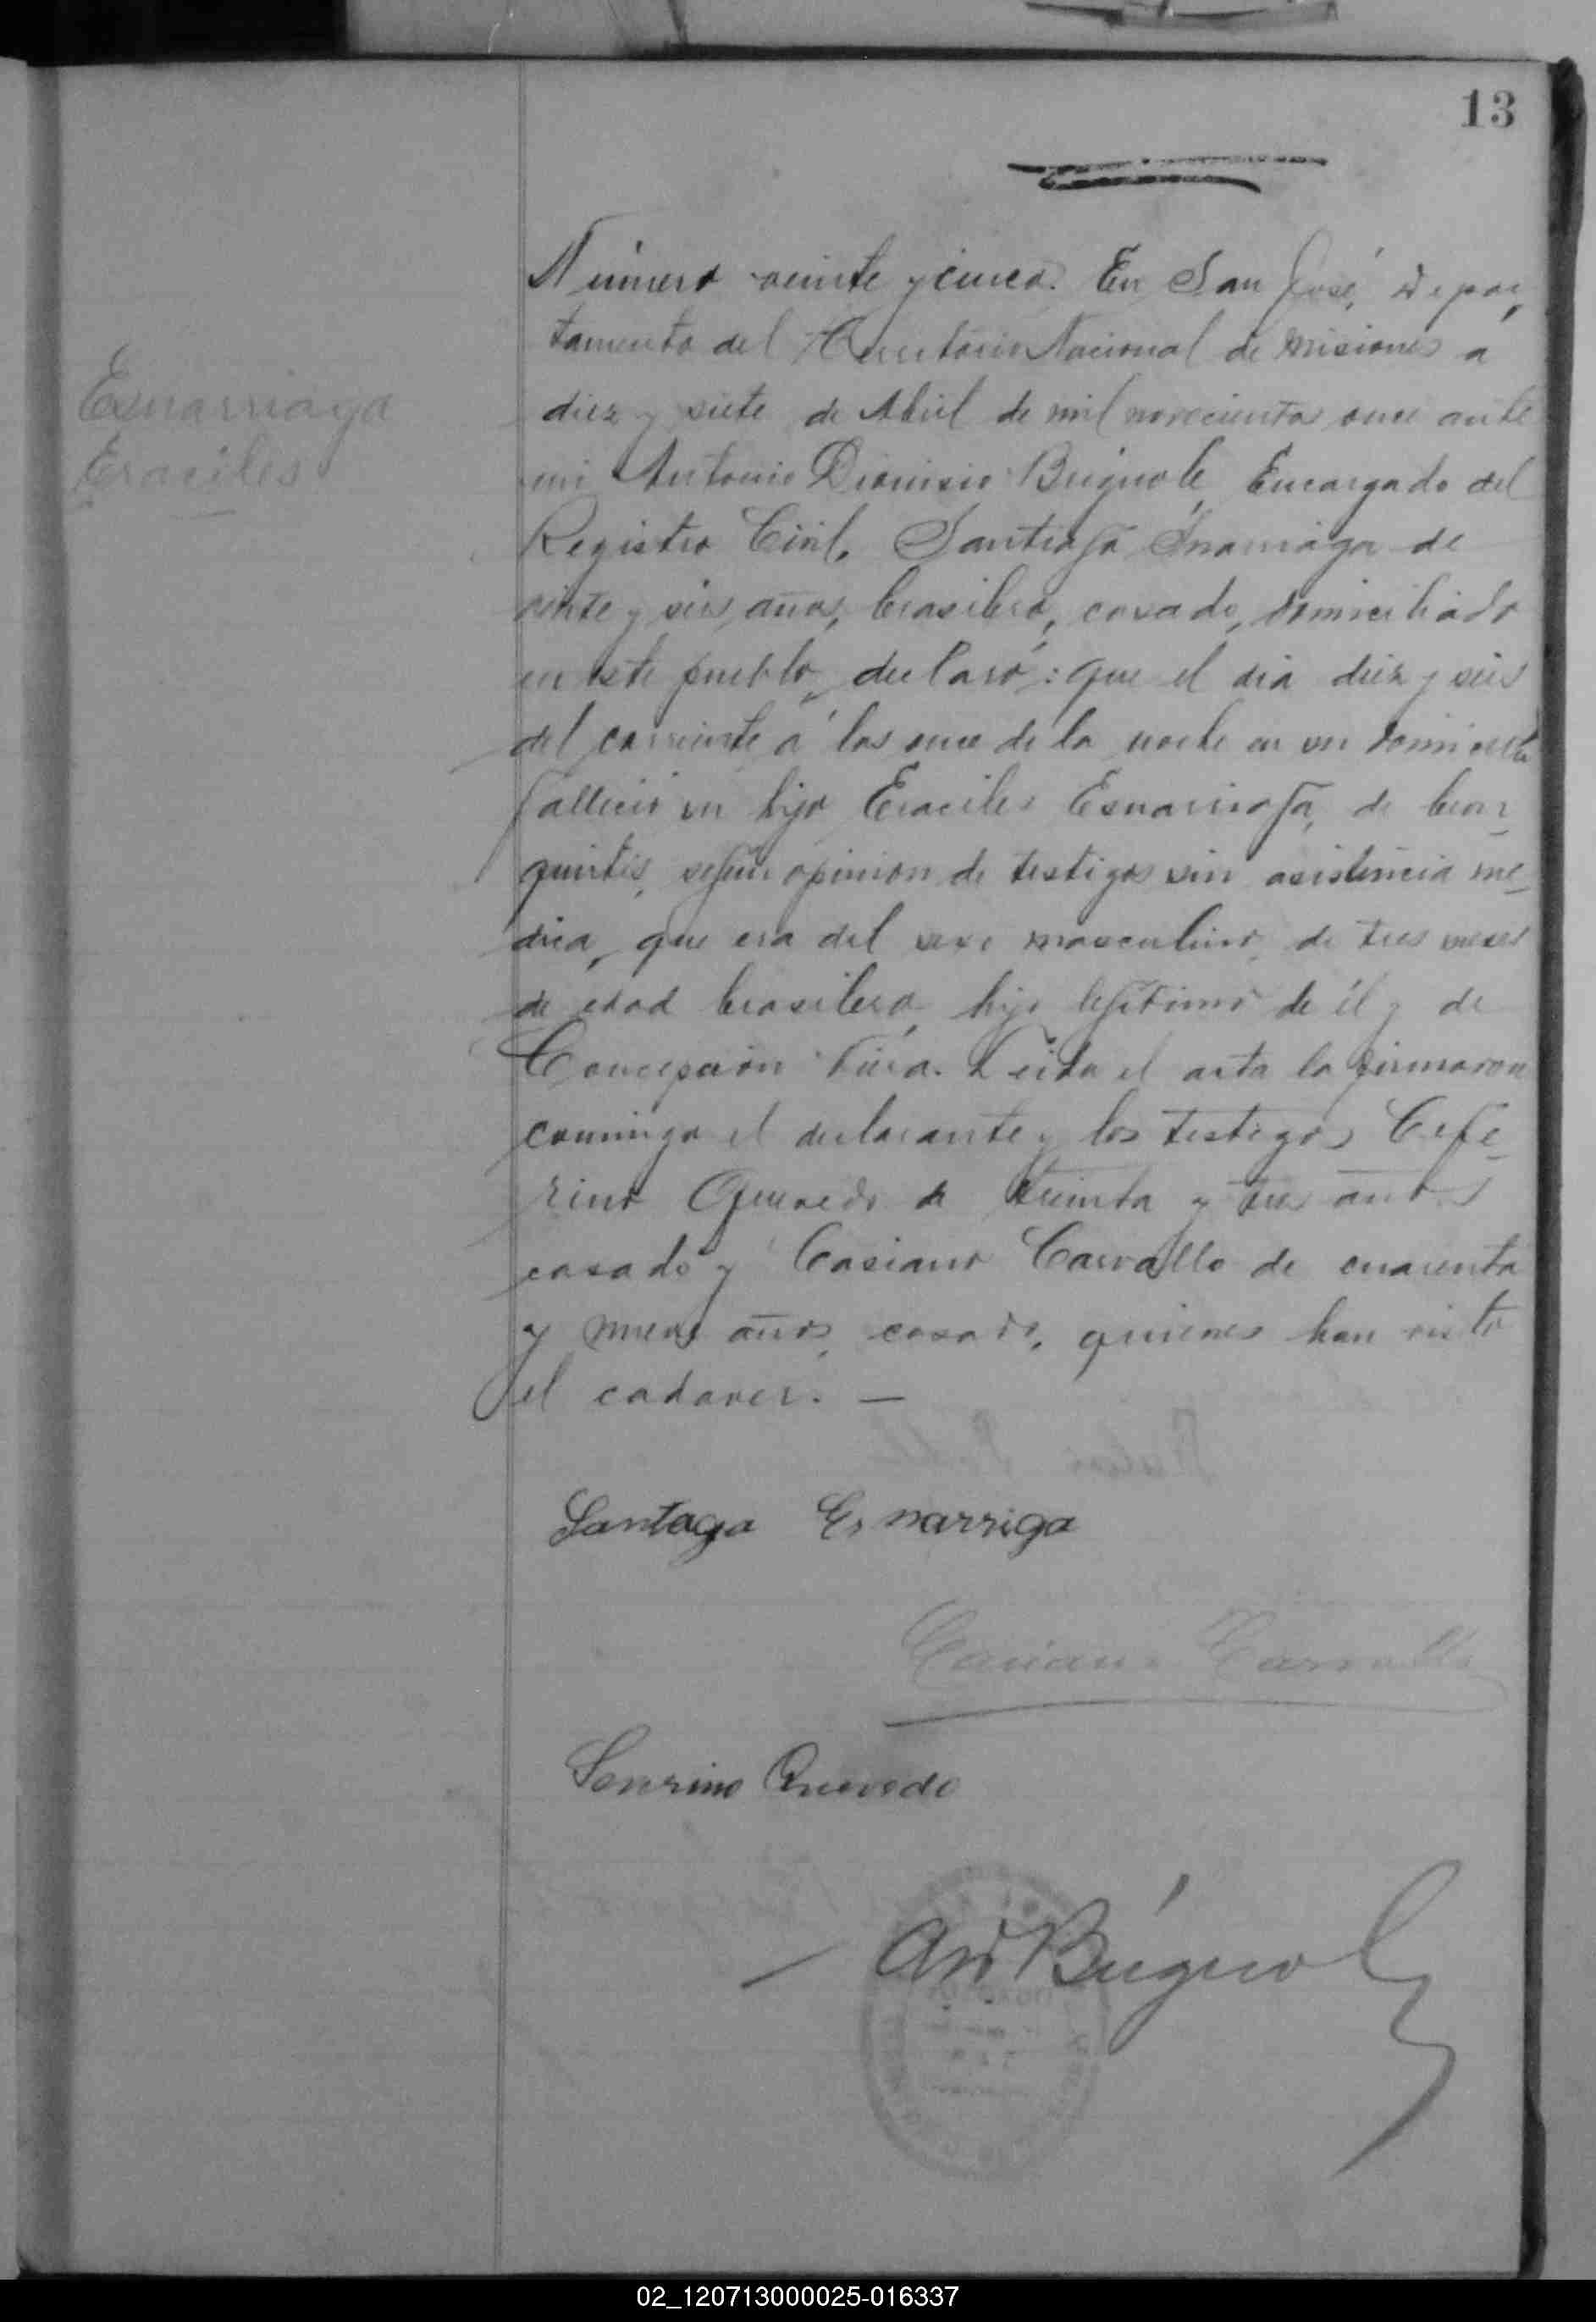 13
Número veinte y cinco. En San José, Depar,
tamento del Territorio Nacional de Misiones a
diez y siete de Abril de mil novecientos once ante
mi Antonio Dionisio Búgnole, Encargado del
Registro Civil, Santiago Snarriaga de
veinte y seis años, brasilero, casado, domiciliado
en este pueblo, declaró: que el dia diez y seis
del corriente á las once de la noche en su domicilio
falleció su hijo Eraciles Esnarriaga, de bron-
quitis, según opinion de testigos sin asistencia me-
dica, que era del sexo masculino, de tres meses
de edad brasilero, hijo legítimo de él y de
Concepción Leida el acta la firmaron
conmigo el declarante y los testigos Cefe-
rino Quevedo de treinta y tres años
casado y Casiano Carvallo de cuarenta
y nueve años, casado, quienes han visto
el cadaver. —
Esnarriaga
Eraciles
Santago Esnarriga
Casiano Carvallo
Quevedo
Búgnole
02_120713000025-016337